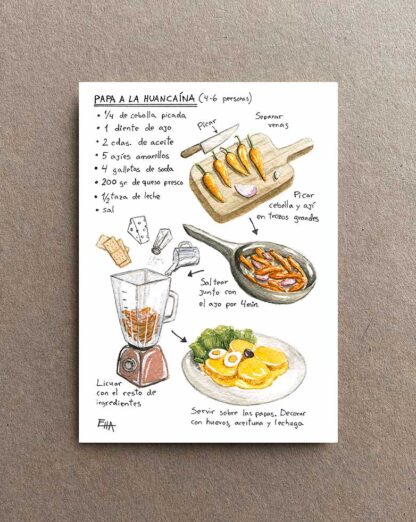 PAPA A LA HUANCAÍNA (4-6 personas)
• 1/4 de cebolla picada
• 1 diente de ajo
• 2 cdas. de aceite
• 5 ajíes amarillos
• 4 galletas de soda
• 200 gr de queso fresco
• 1/2 taza de leche
• sal
Picar
Separar
venas
Picar
cebolla y ají
en trozos grandes
Saltear
junto con
el ajo por 4min
Licuar
con el resto de
ingredientes
Servir sobre las papas. Decorar
con huevos, aceituna y lechuga